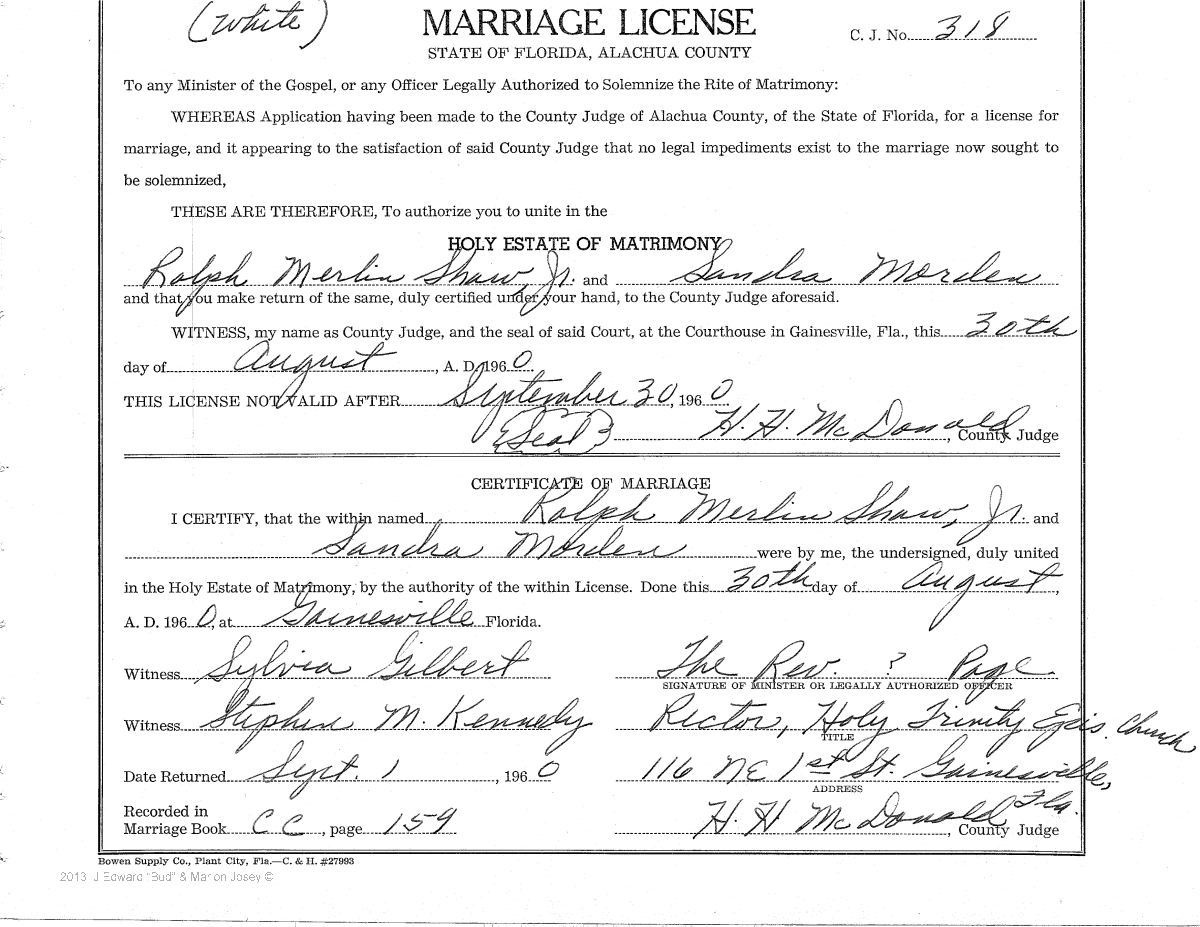 (White)
MARRIAGE LICENSE
C. J. No. 318
STATE OF FLORIDA, ALACHUA COUNTY
To any Minister of the Gospel, or any Officer Legally Authorized to Solemnize the Rite of Matrimony:
WHEREAS Application having been made to the County Judge of Alachua County, of the State of Florida, for a license for
marriage, and it appearing to the satisfaction of said County Judge that no legal impediments exist to the marriage now sought to
be solemnized,
THESE ARE THEREFORE, To authorize you to unite in the
HOLY ESTATE OF MATRIMONY
Ralph Merlin Shaw, Jr. and Sandra Morden
and that you make return of the same, duly certified under your hand, to the County Judge aforesaid.
WITNESS, my name as County Judge, and the seal of said Court, at the Courthouse in Gainesville, Fla., this 30th
day of August, A. D. 1960.
THIS LICENSE NOT VALID AFTER September 30, 1960
(Seal) H. H. McDonald, County Judge
CERTIFICATE OF MARRIAGE
I CERTIFY, that the within named Ralph Merlin Shaw, Jr. and
Sandra Morden were by me, the undersigned, duly united
in the Holy Estate of Matrimony, by the authority of the within License. Done this 30th day of August,
A. D. 1960, at Gainesville Florida.
Witness Sylvia Gilbert The Rev. ? Page
SIGNATURE OF MINISTER OR LEGALLY AUTHORIZED OFFICER
Witness Stephen M. Kennedy Rector, Holy Trinity Epis. Church
TITLE
Date Returned Sept. 1, 1960 116 NE 1st St. Gainesville,
ADDRESS
Fla.
Recorded in
Marriage Book CC, page 159 H. H. McDonald, County Judge
Bowen Supply Co., Plant City, Fla.—C. & H. #27993
2013 J Edward "Bud" & Marion Josey ©